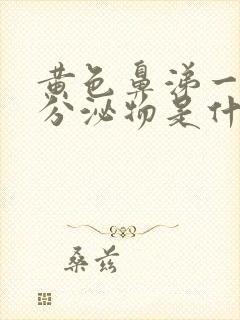 黄色鼻涕一
分泌物是什
桑兹